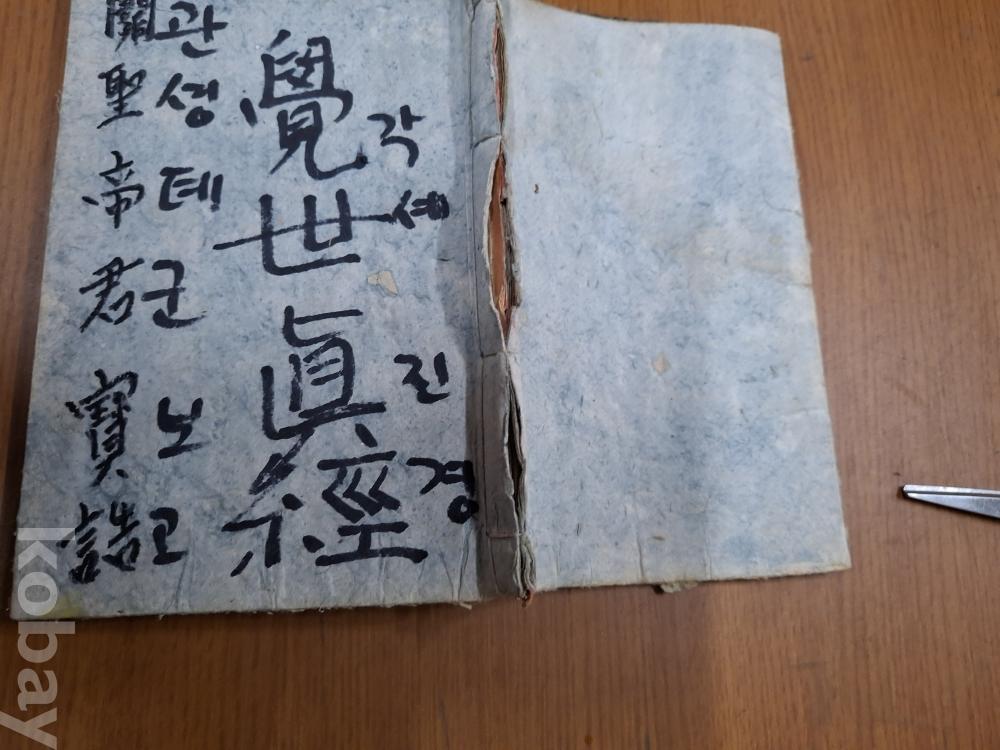 覺世眞經
각세진경
關聖帝君寶誥
관셩톄군노고
kobay